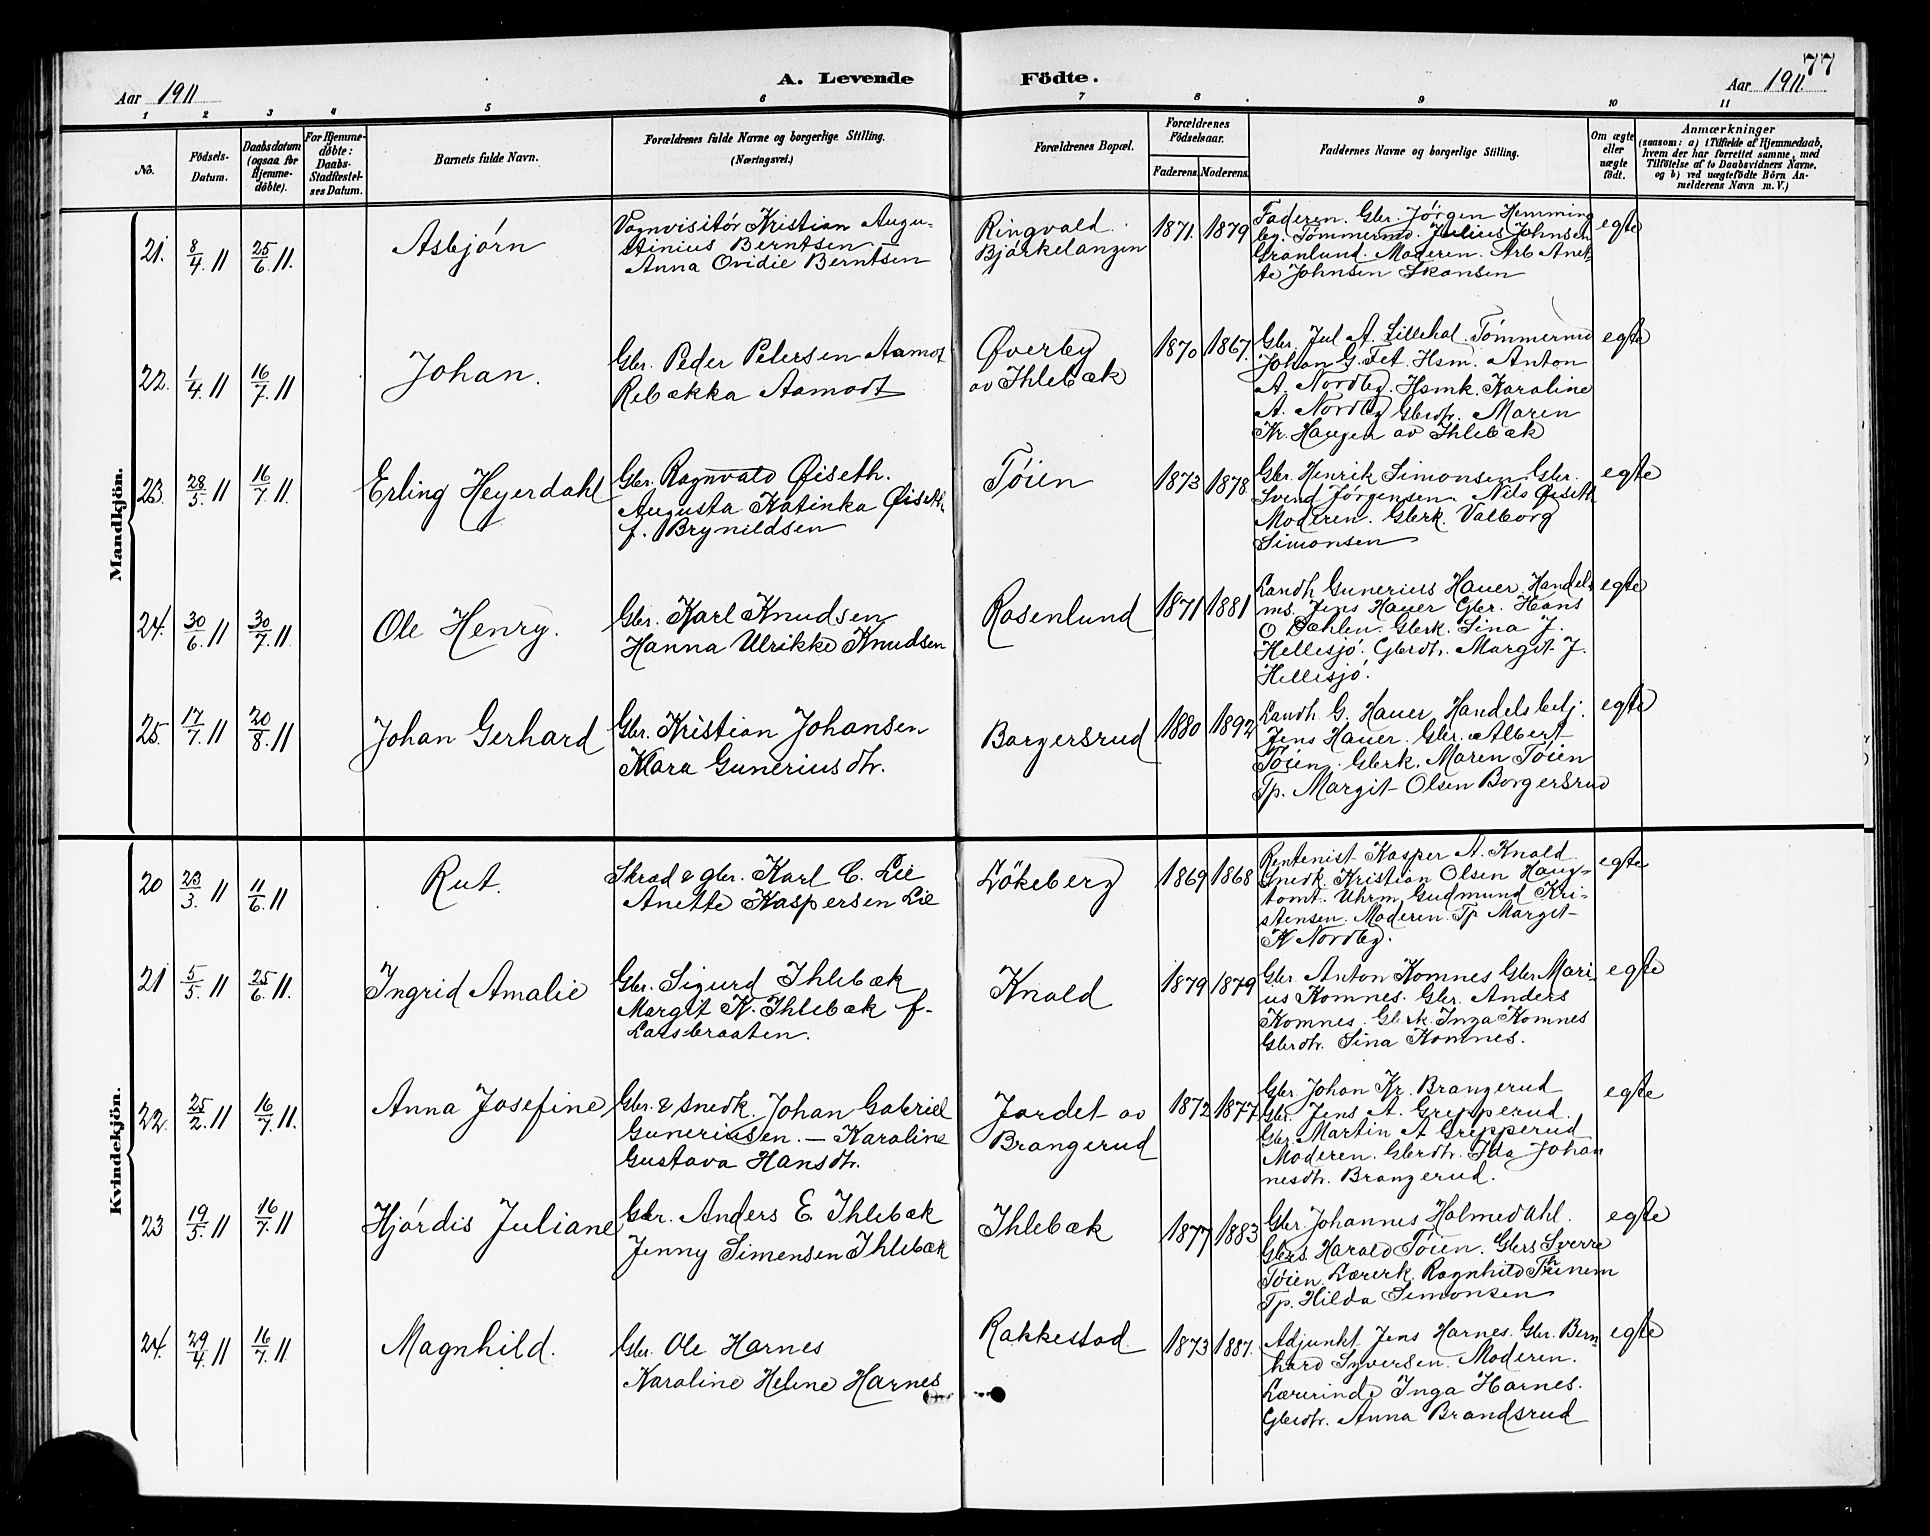 77
Aar 1911
A. Levende Födte.
Aar 1911.
1 2 3 4 5 6 7 8 9 10 11
No.
Födsels-
Datum.
Daabsdatum
(ogsaa for
Hjemme-
döbte).
For Hjemme-
döbte:
Daabs-
Stadfæstel-
ses Datum.
Barnets fulde Navn.
Forældrenes fulde Navne og borgerlige Stilling.
(Næringsvei.)
Forældrenes Bopæl.
Forældrenes
Födselsaar.
Faderens. Moderens.
Faddernes Navne og borgerlige Stilling.
Om ægte
eller
uægte
födt.
Anmærkninger
(saasom: a) i Tilfælde af Hjemmedaab,
hvem der har forrettet samme, med
Tilföielse af to Daabsvidners Navne,
og b) ved uægtefödte Börn An-
melderens Navn m. V.)
Mandkjön.
21. 8/4 11 25/6 11. Asbjørn
Vognvisitør Kristian Augu-
stinius Berntsen
Anna Ovidie Berntsen
Ringvald
Bjørkelangen
1871. 1879
Faderen. Gbr. Jörgen Hemming
by. Tømmermd. Julius Johnsen
Grønlund. Moderen. Arb. Anet-
te Johnsen Skansen
egte
22. 1/4 11 16/7 11 Johan.
Gbr. Peder Petersen Aamot
Rebekka Aamodt
Øverby
av Ihlebæk
1870 1867.
Gbr. Jul A. Lillehol. Tømmermd
Johan G. Fet. Hsm. Anton
A. Nordby. Hsmk. Karoline
A. Nordby Gbrdtr. Maren
Kr. Haugen av Ihlebæk
egte
23. 28/5 11 16/7 11. Erling Heyerdahl
Gbr. Ragnvald Øiseth.
Augusta Katinka Øiseth
f. Brynildsen
Tøien
1873 1878
Gbr. Henrik Simonsen Gbr.
Svend Jørgensen. Nils Øiseth
Moderen. Gbrk. Valborg
Simonsen
egte
24. 30/6 11 30/7 11 Ole Henry.
Gbr. Karl Knudsen
Hanna Ulrikke Knudsen
Rosenlund
1871 1881
Landh. Gunerius Hauer. Handels
ms. Jens Hauer Gbr. Hans
O Dahlen. Gbrk. Lina J.
Hellesjø. Gbrdtr. Margit J.
Hellesjø.
egte
25. 17/7 11 20/8 11 Johan Gerhard
Gbr. Kristian Johansen
Klara Guneriusdtr.
Borgersrud
1880 1892
Landh. G. Hauer Handelsbetj.
Jens Hauer. Gbr. Albert
Tøien. Gbrk. Maren Tøien
Tp. Margit Olsen Borgersrud
egte
Kvindekjön.
20 23/3. 11 11/6 11 Rut.
Skræd & gbr. Karl C. Lie
Anette Kaspersen Lie
Løkeberg
1869 1868
Rentenist Kasper A. Knold
Snedk. Kristian Olsen Haug-
tomt. Uhrm Gudmund Kri-
stensen. Moderen. Tp Margit
K Nordby.
egte
21 5/5. 11 25/6 11. Ingrid Amalie
Gbr. Sigurd Ihlebæk
Margit K. Ihlebæk f.
Larsbraaten.
Knold
1879 1879
Gbr. Anton Komnes Gbr Mari-
us Komnes. Gbr. Anders
Komnes. Gbrk. Inga Komnes
Gbrdtr. Lina Komnes.
egte
22. 25/2 11 16/7 11. Anna Josefine
Gbr. & snedk. Johan Gabriel
Guneriusen. — Karoline
Gustava Hansdtr.
Jordet av
Brangerud
1872 1877
Gbr Johan Kr. Brangerud
Gbr. Jens A. Gripperud.
Gbr. Martin A Gripperud
Moderen. Gbrdtr. Ida Johan
nesdtr. Brangerud.
egte
23 19/5. 11 16/7. 11 Hjørdis Juliane
Gbr. Anders E. Ihlebæk
Jenny Simensen Ihlebæk
Ihlebæk
1877 1883
Gbr. Johannes Holmedahl.
Gbrs. Harald Tøien. Gbrs Sverre
Tøien. Lærerk. Ragnhild Thunem
Tp. Hilda Simonsen
egte
24. 29/4 11 16/7. 11 Magnhild.
Gbr. Ole Harnes
Karoline Helene Harnes
Rakkestad
1873 1887.
Adjunkt Jens Harnes. Gbr. Bern
hard Syversen. Moderen.
Lærerinde Inga Harnes.
Gbrdtr. Anna Brandsrud
egte